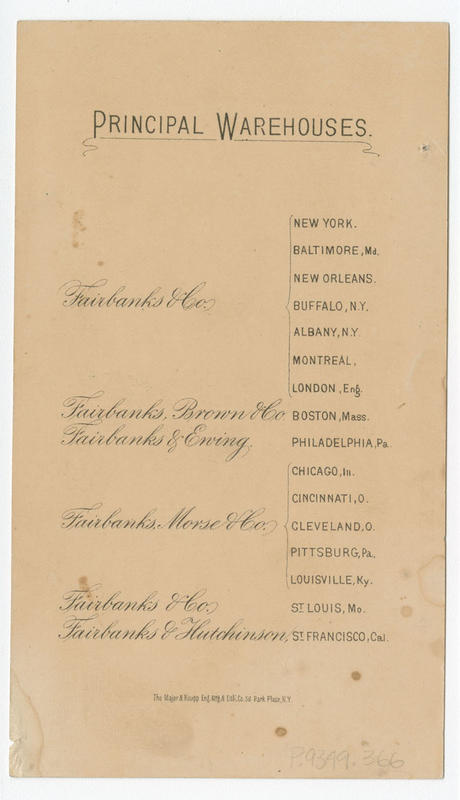 PRINCIPAL WAREHOUSES.
Fairbanks & Co.
NEW YORK.
BALTIMORE, Md.
NEW ORLEANS.
BUFFALO, N.Y.
ALBANY, N.Y.
MONTREAL,
LONDON, Eng.
Fairbanks, Brown & Co. BOSTON, Mass.
Fairbanks & Ewing. PHILADELPHIA, Pa.
Fairbanks, Morse & Co.
CHICAGO, In.
CINCINNATI, O.
CLEVELAND, O.
PITTSBURG, Pa.
LOUISVILLE, Ky.
Fairbanks & Co. ST LOUIS, Mo.
Fairbanks & Hutchinson, ST FRANCISCO, Cal.
The Major & Knapp Eng. Mfg. & Lith. Co. 56 Park Place, N.Y.
P.9349.366